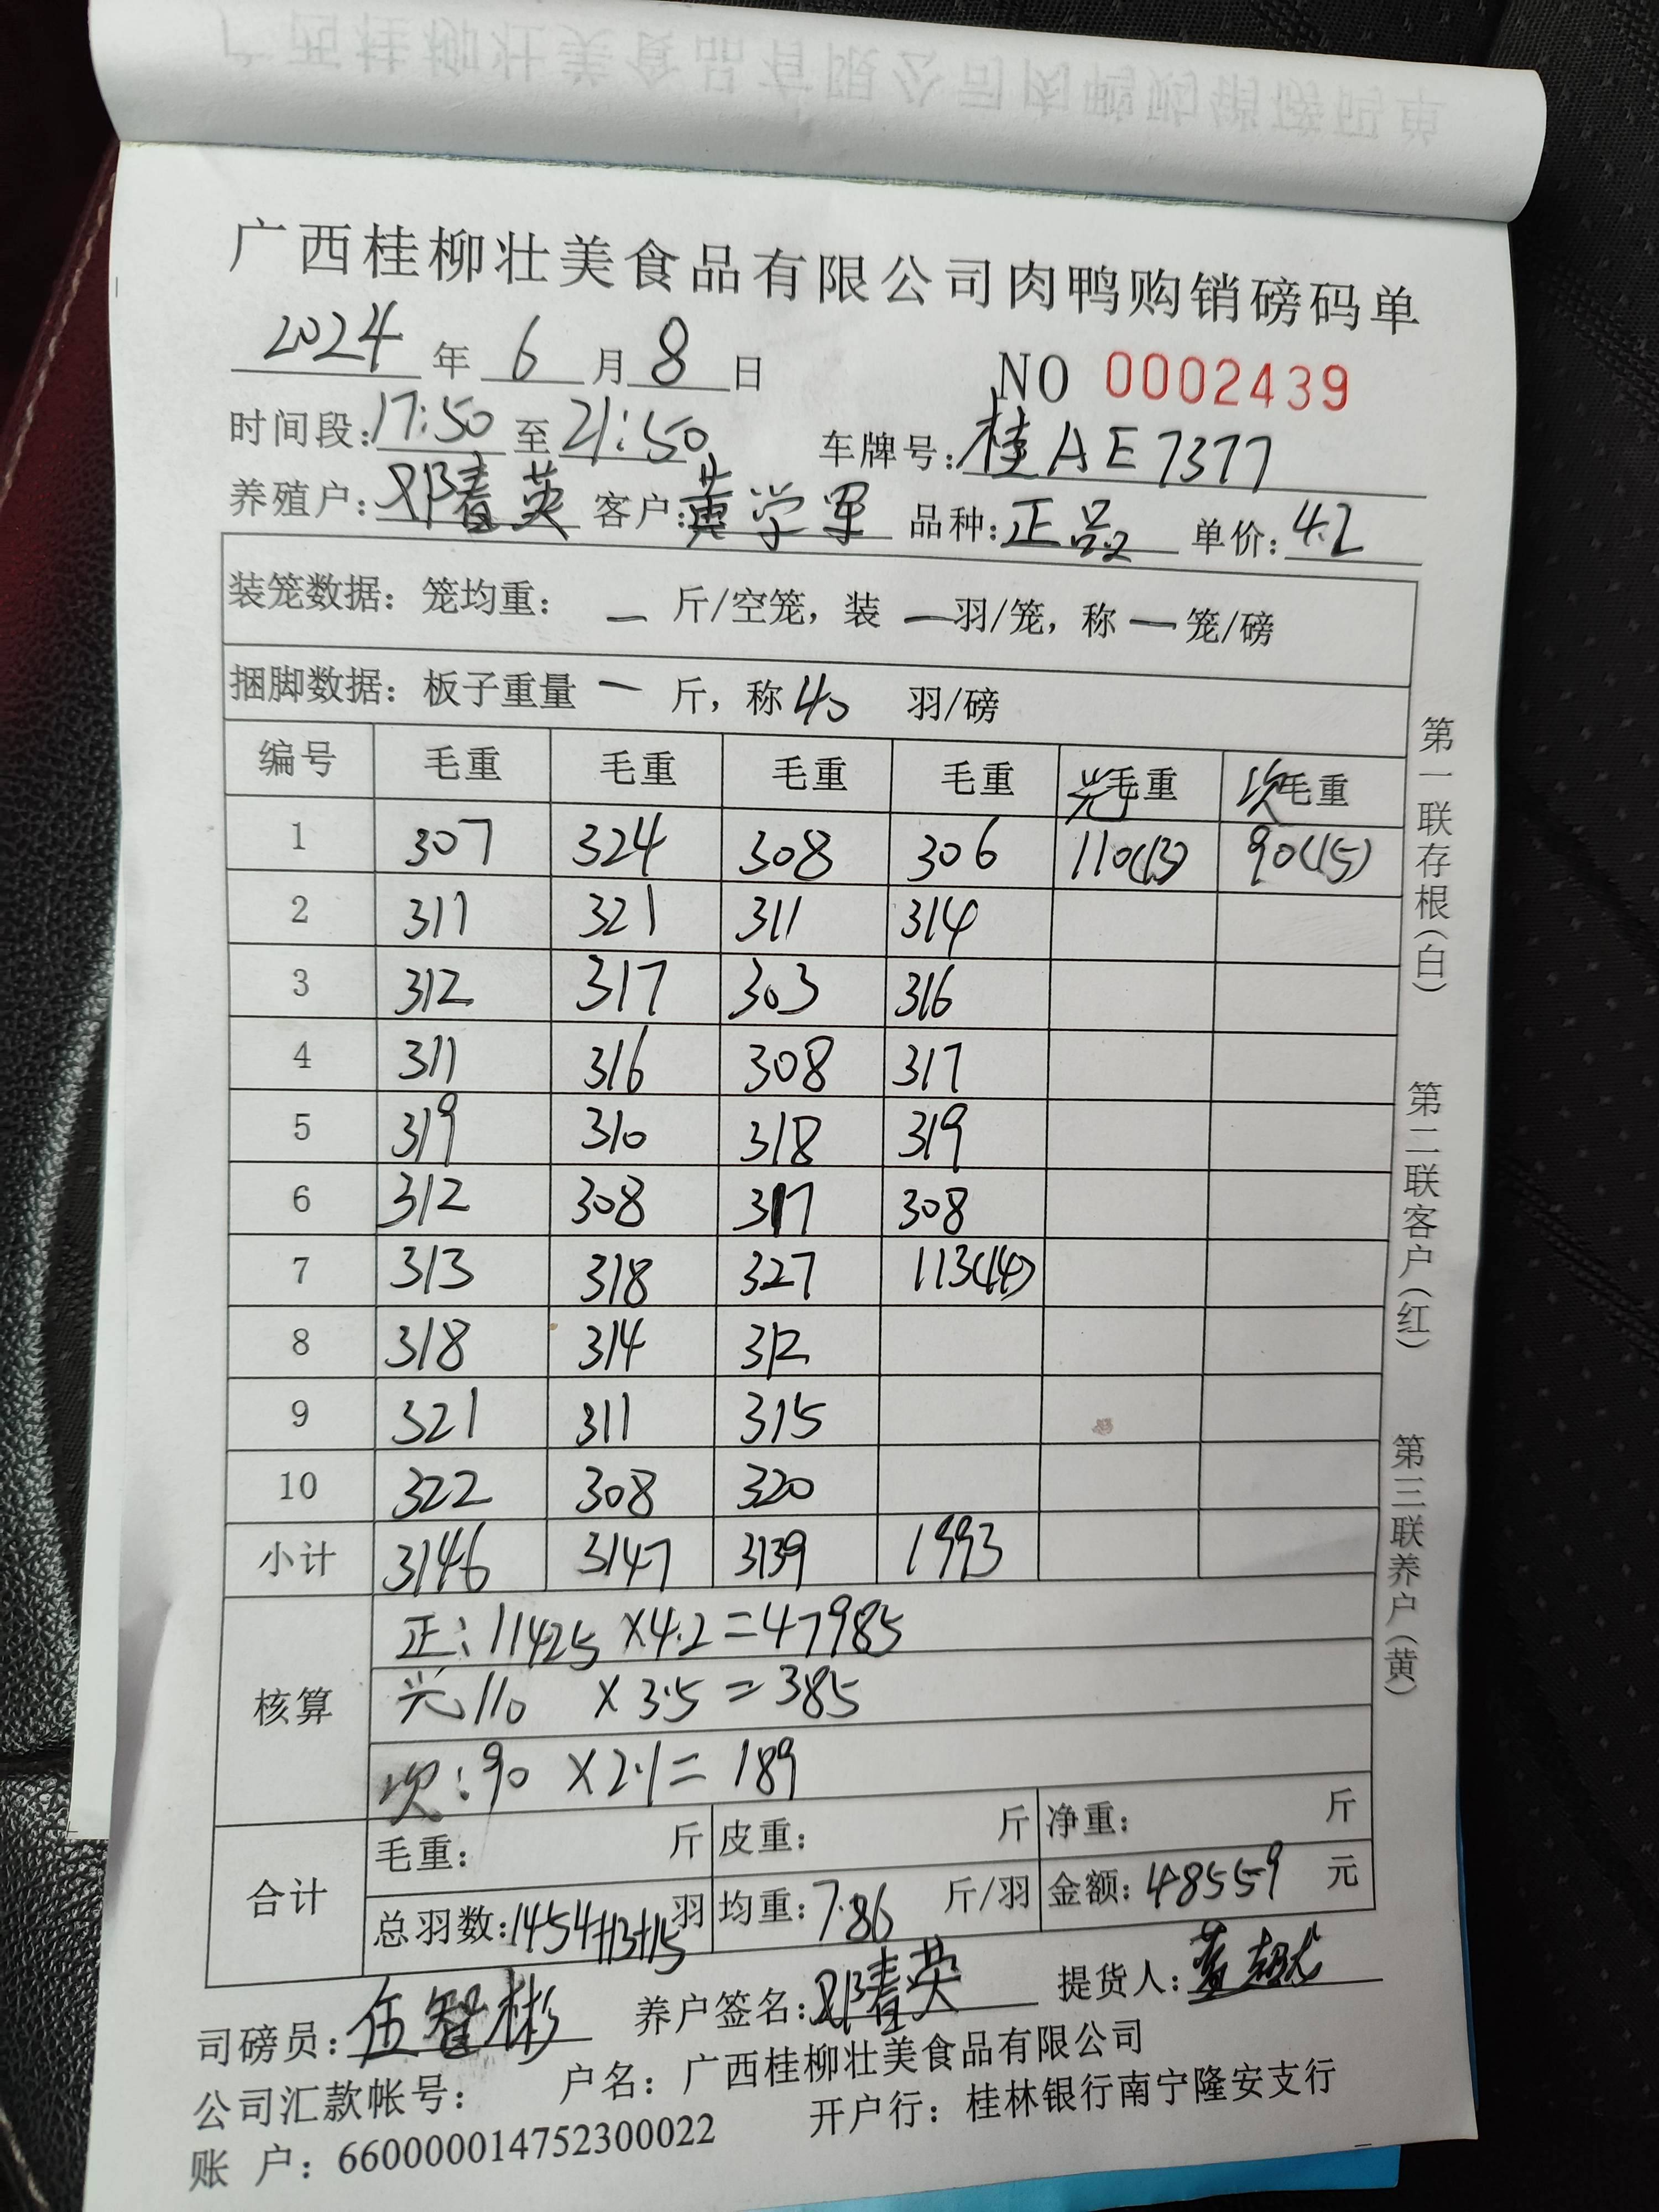 广西桂柳壮美食品有限公司肉鸭购销磅码单
2024 年 6 月 8 日 NO 0002439
时间段: 17:50 至 21:50 车牌号: 桂AE7377
养殖户: 邓春英 客户: 黄学军 品种: 正品 单价: 4.2
装笼数据: 笼均重: — 斤/空笼, 装 — 羽/笼, 称 — 笼/磅
捆脚数据: 板子重量 — 斤, 称 40 羽/磅
编号 毛重 毛重 毛重 毛重 毛重 次毛重
1 307 324 308 306 110(13) 90(15)
2 311 321 311 314
3 312 317 303 316
4 311 316 308 317
5 319 310 318 319
6 312 308 317 308
7 313 318 327 113(14)
8 318 314 312
9 321 311 315
10 322 308 320
小计 3146 3147 3139 1993
核算 正: 11425 ×4.2=47985
110 ×3.5=385
次: 90 ×2.1= 189
合计 毛重: 斤 皮重: 斤 净重: 斤
总羽数: 1454+13+15 羽 均重: 7.86 斤/羽 金额: 48559 元
司磅员: 伍智彬 养户签名: 邓春英 提货人:
公司汇款帐号: 户名: 广西桂柳壮美食品有限公司
账 户: 660000014752300022 开户行: 桂林银行南宁隆安支行
第一联存根(白) 第二联客户(红) 第三联养户(黄)